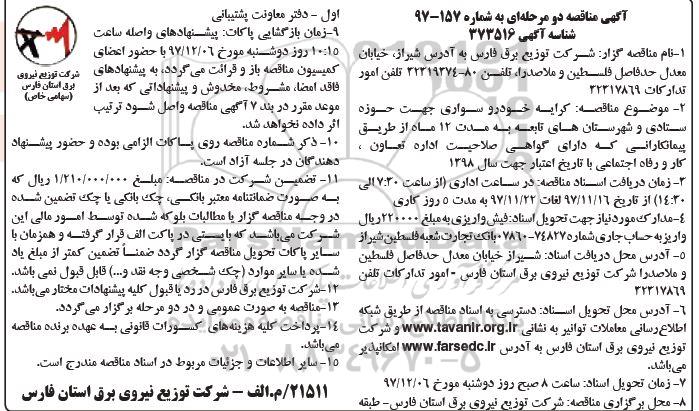 آگهی مناقصه دو مرحله‌ای به شماره ۱۵۷-۹۷
شناسه آگهی ۳۷۳۵۱۶
۱-نام مناقصه گزار: شرکت توزیع برق فارس به آدرس شیراز، خیابان
معدل حدفاصل فلسطین و ملاصدرا، تلفن ۸۰-۳۲۳۱۹۳۷۴ تلفن امور
تدارکات ۳۲۳۱۷۸۶۹
۲- موضوع مناقصه: کرایه خودرو سواری جهت حوزه
ستادی و شهرستان های تابعه به مدت ۱۲ ماه از طریق
پیمانکارانی که دارای گواهی صلاحیت اداره تعاون ،
کار و رفاه اجتماعی با تاریخ اعتبار جهت سال ۱۳۹۸
۳- زمان دریافت اسناد مناقصه: در ساعت اداری (از ساعت ۷:۳۰ الی
۱۴:۳۰) از تاریخ ۹۷/۱۱/۱۶ لغات ۹۷/۱۱/۲۲ به مدت ۵ روز کاری
۴-مدارک مورد نیاز جهت تحویل اسناد: فیش واریزی به مبلغ ۲۲۰۰۰۰ ریال
واریز به حساب جاری شماره ۷۴۸۲۷-۰۷۸۶۰ بانک تجارت شعبه فلسطین شیراز
۵- آدرس محل دریافت اسناد: شیراز خیابان معدل حدفاصل فلسطین
و ملاصدرا شرکت توزیع نیروی برق استان فارس - امور تدارکات تلفن
۳۲۳۱۷۸۶۹
۶- آدرس محل تحویل اسناد: دسترسی به اسناد مناقصه از طریق شبکه
اطلاع رسانی معاملات توانیر به نشانی www.tavanir.org.ir و شرکت
توزیع نیروی برق استان فارس به آدرس www.farsedc.ir امکانپذیر
می‌باشد.
۷- زمان تحویل اسناد: ساعت ۸ صبح روز دوشنبه مورخ ۹۷/۱۲/۰۶
۸- محل برگزاری مناقصه: شرکت توزیع نیروی برق استان فارس- طبقه
اول - دفتر معاونت پشتیبانی
۹-زمان بازگشایی پاکات: پیشنهادهای واصله ساعت
۱۰:۱۵ روز دوشنبه مورخ ۹۷/۱۲/۰۶ با حضور اعضای
کمیسیون مناقصه باز و قرائت می‌گردد، به پیشنهادهای
فاقد امضا، مشروط، مخدوش و پیشنهاداتی که بعد از
موعد مقرر در بند ۷ آگهی مناقصه واصل شود ترتیب
اثر داده نخواهد شد.
۱۰- ذکر شماره مناقصه روی پاکات الزامی بوده و حضور پیشنهاد
دهندگان در جلسه آزاد است.
۱۱- تضمین شرکت در مناقصه: مبلغ ۱/۲۱۰/۰۰۰/۰۰۰ ریال که
به صورت ضمانتنامه معتبر بانکی، چک بانکی یا چک تضمین شده
در وجه مناقصه گزار یا مطالبات بلوکه شده توسط امور مالی این
شرکت می‌باشد که بایستی در پاکت الف قرار گرفته و همزمان با
سایر پاکات تحویل مناقصه گزار گردد ضمناً تضمین کمتر از مبلغ یاد
شده یا سایر موارد (چک شخصی وجه نقد و...) قابل قبول نمی باشد.
۱۲-شرکت توزیع برق فارس در رد یا قبول کلیه پیشنهادات مختار می‌باشد.
۱۳-مناقصه به صورت عمومی و در دو مرحله برگزار می‌گردد.
۱۴- پرداخت کلیه هزینه‌های کسورات قانونی به عهده برنده مناقصه
می‌باشد.
۱۵- سایر اطلاعات و جزئیات مربوط در اسناد مناقصه مندرج است.
۲۱۵۱۱/م.الف - شرکت توزیع نیروی برق استان فارس
شرکت توزیع نیروی
برق استان فارس
(سهامی خاص)